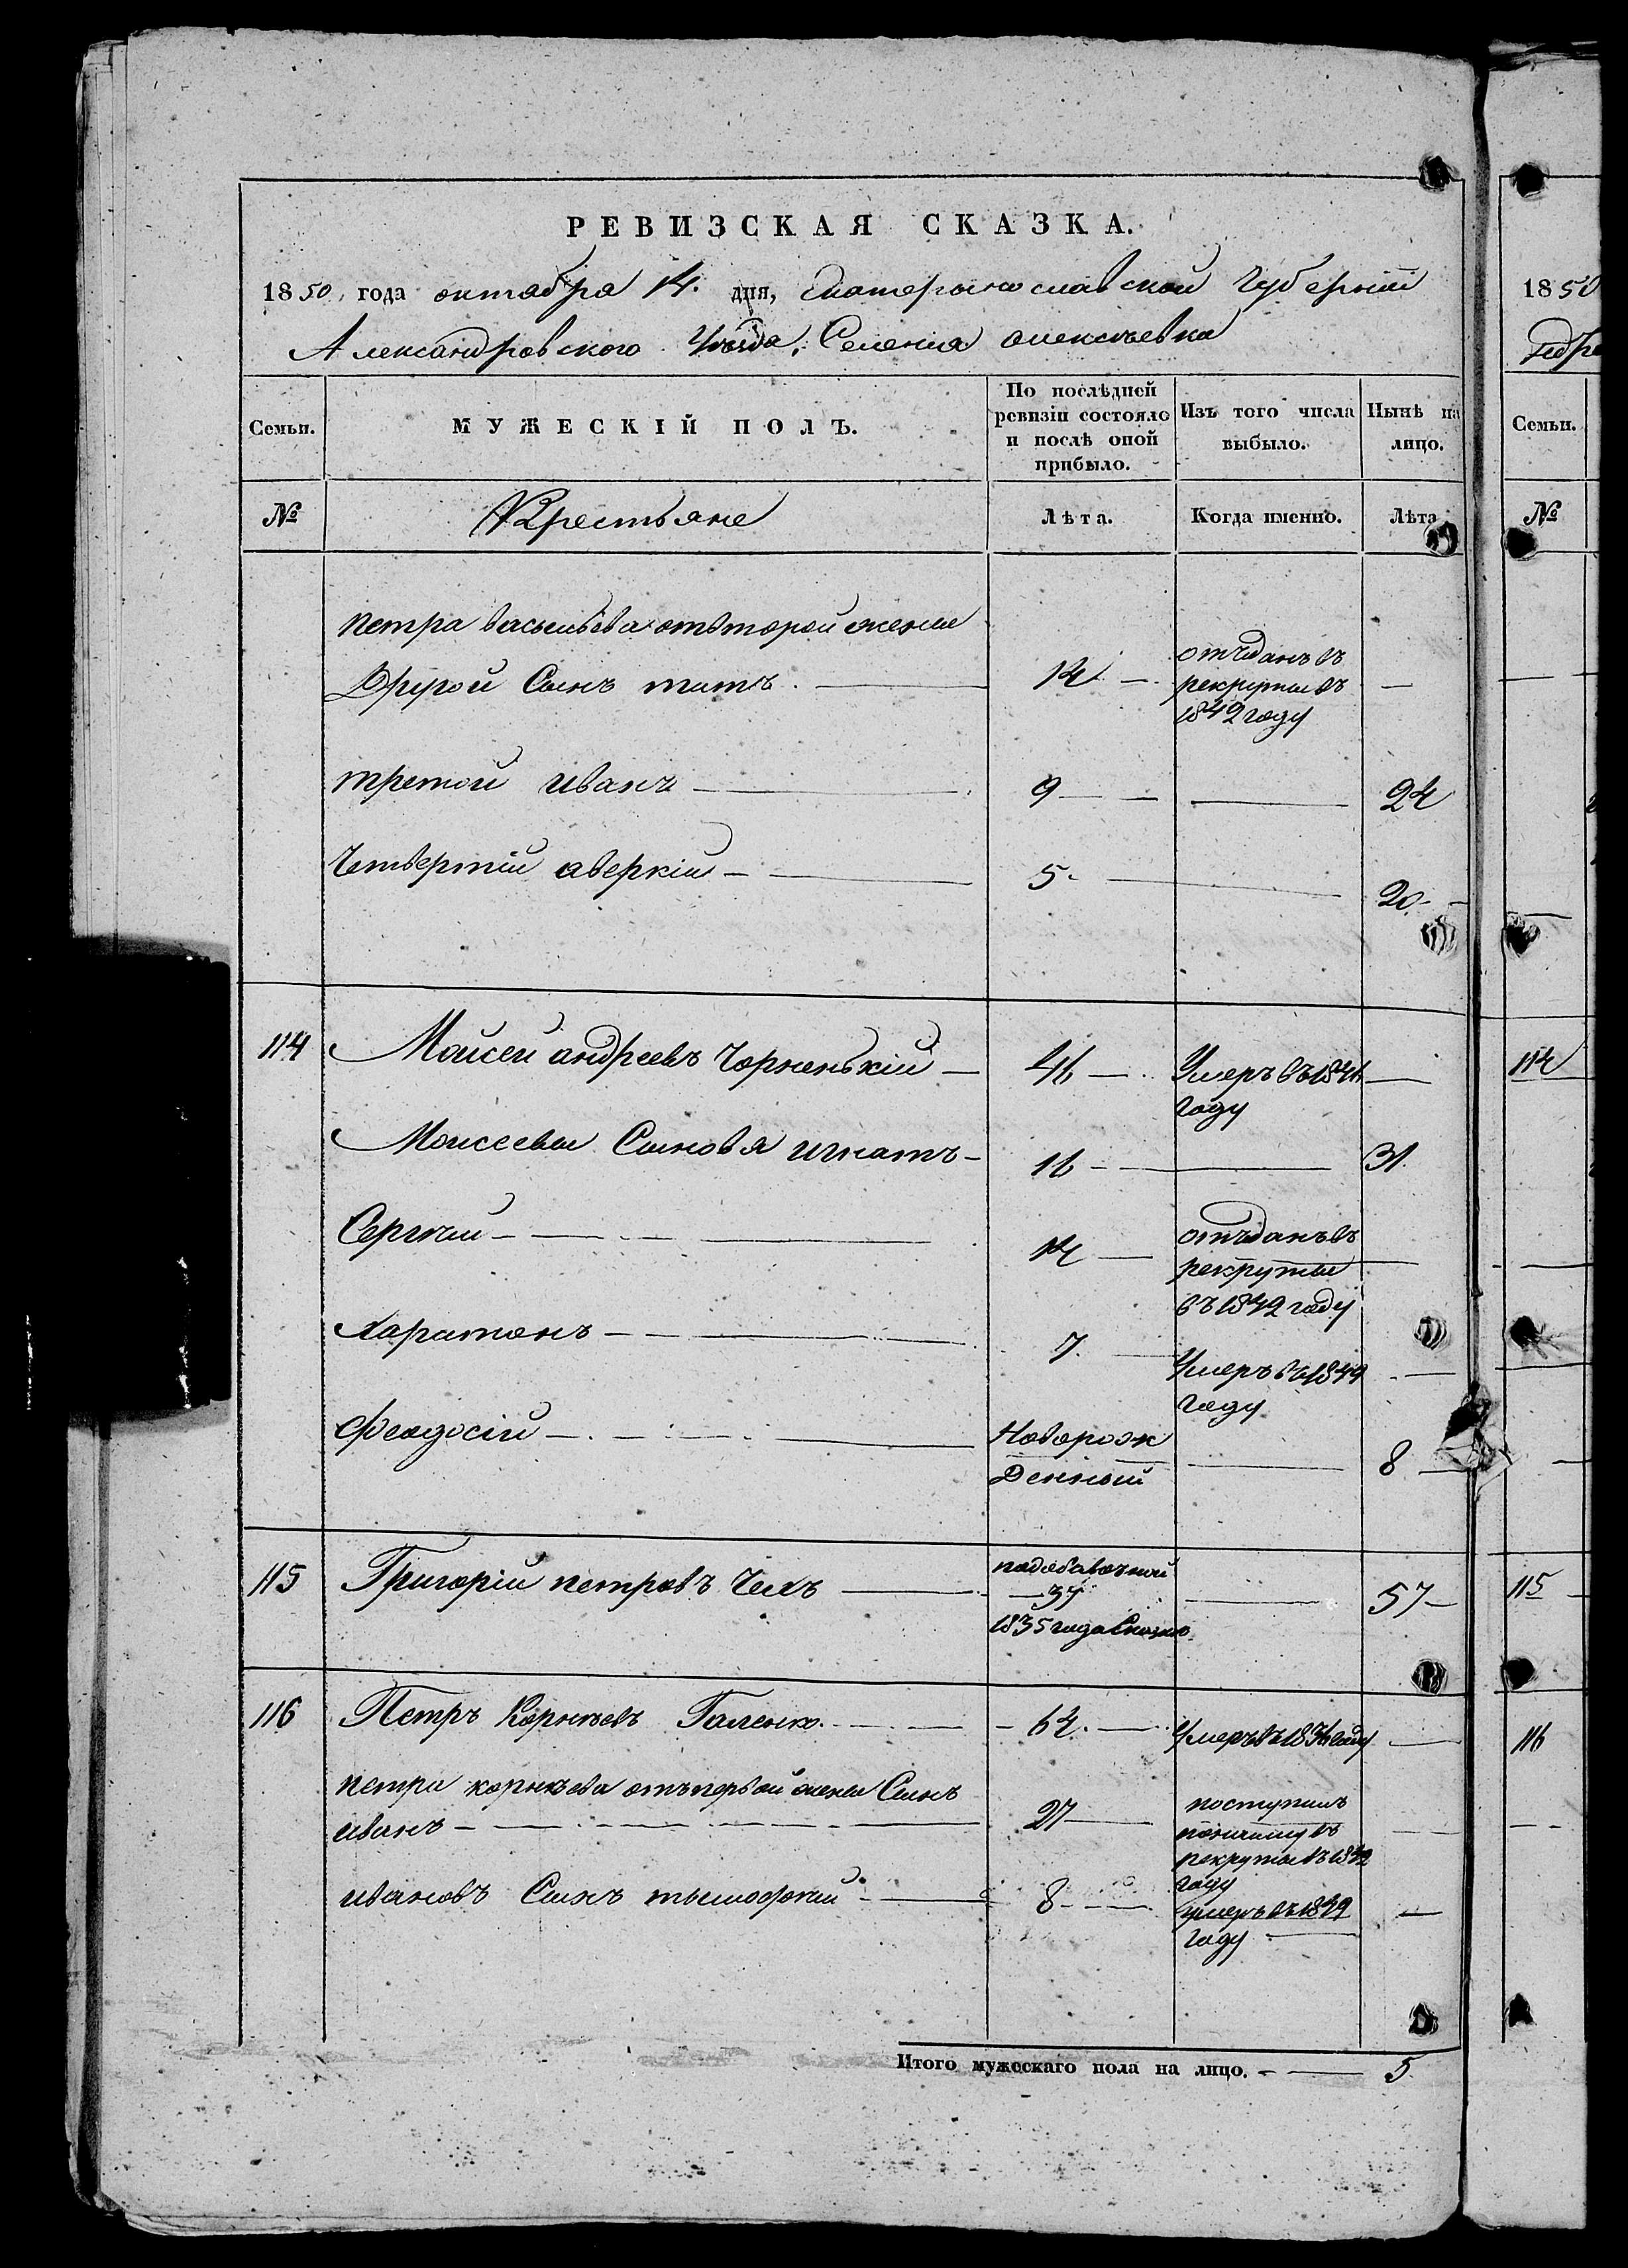 РЕВИЗСКАЯ СКАЗКА.
1850 года октабра 14. дня, Екатеринославской Губерніи
Александровского Уѣзда, Селенія алексѣевка
Семьи.
МУЖЕСКІЙ ПОЛЪ.
По послѣдней ревизіи состояло и послѣ оной прибыло.
Изъ того числа выбыло.
Нынѣ на лицо.
№
Крестьяне
Лѣта.
Когда именно.
Лѣта
петра васильева отвторой жены
Другой Сынъ титъ. 14 отъданъ въ рекруты въ 1849 году
третой иванъ 9 24
Четвертій аверкій 5 20
114 Моисей андреевъ Чорненькій 46 Умеръ въ 1841 году
Моисеевы Сыновя игнатъ 16 31
Сергѣй 14 отъданъ въ рекруты въ 1842 году
Харитонъ 7 Умеръ въ 1849 году
Феодосій Новорож денный 8
115 Григорій петровъ Чехъ 1835 года 57
116 Петръ Корнѣевъ Галенко. 64 Умеръ въ году
петра корнѣева отъпервой жены Сынъ
иванъ 27 поступилъ рекруты въ 1842 году
ивановъ Сынъ тымофѣй 8 умеръ въ 1849 году
Итого мужескаго пола на лицо. 5
1850
Семьи.
№
114
115
116